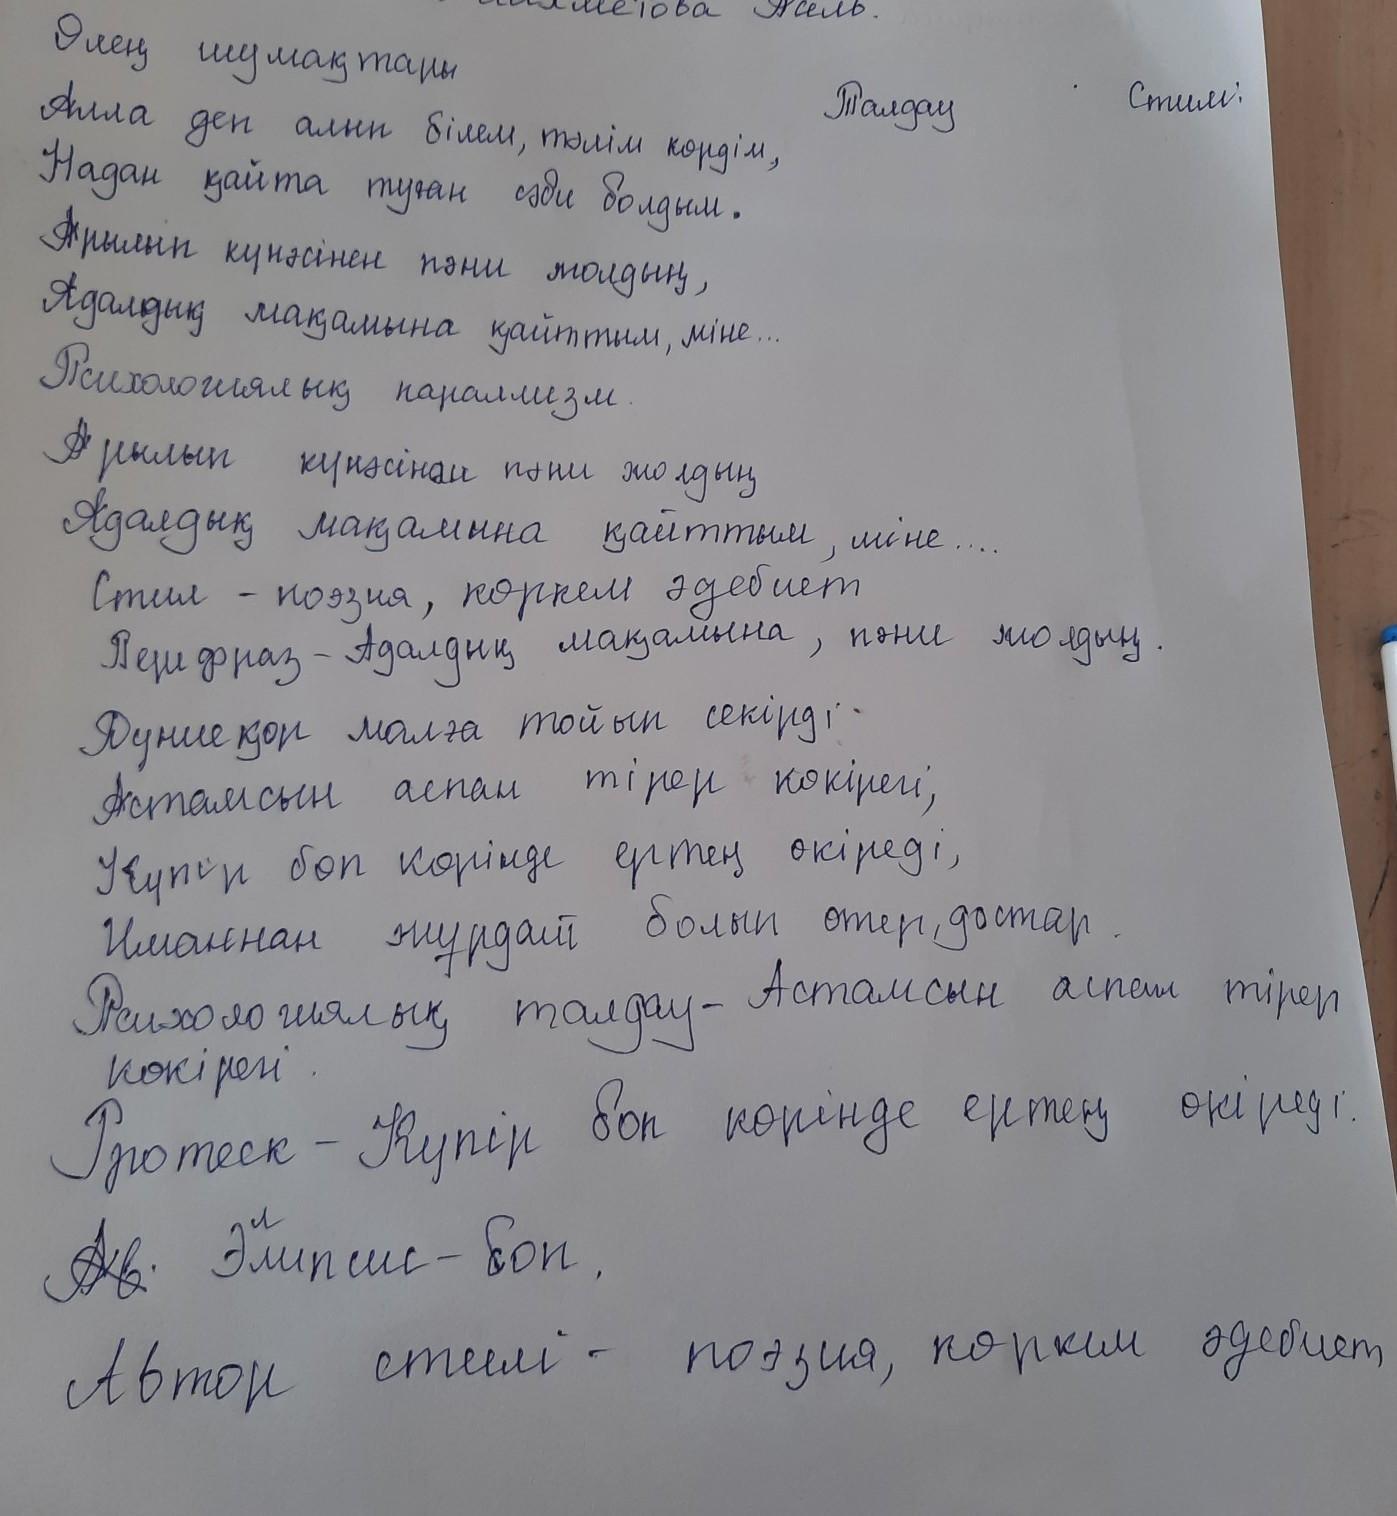 Өлең шумақтары
Талдау Стилі:
Алла деп алып білем, тәлім көрдім,
Надан қайта туған сәби болдым.
Арылып күнәсінен пәни жолдың,
Адалдық мақамына қайттым, міне...
Психологиялық параллизм.
Арылып күнәсінен пәни жолдың
Адалдық мақамына қайттым, міне....
Стил - поэзия, көркем әдебиет
Перифраз - Адалдық мақамына, пәни жолдың.
Дүниеқор малға тойып секірді.
Астамсын аспан тірер көкірегі,
Күпір боп көрінде ертең өкіреді,
Иманнан жұрдай болып өтер, достар.
Психологиялық талдау - Астамсын аспан тірер
көкірегі.
Гротеск - Күпір боп көрінде ертең өкіреді.
Эллипсис - боп.
Автор стилі - поэзия, көркем әдебиет